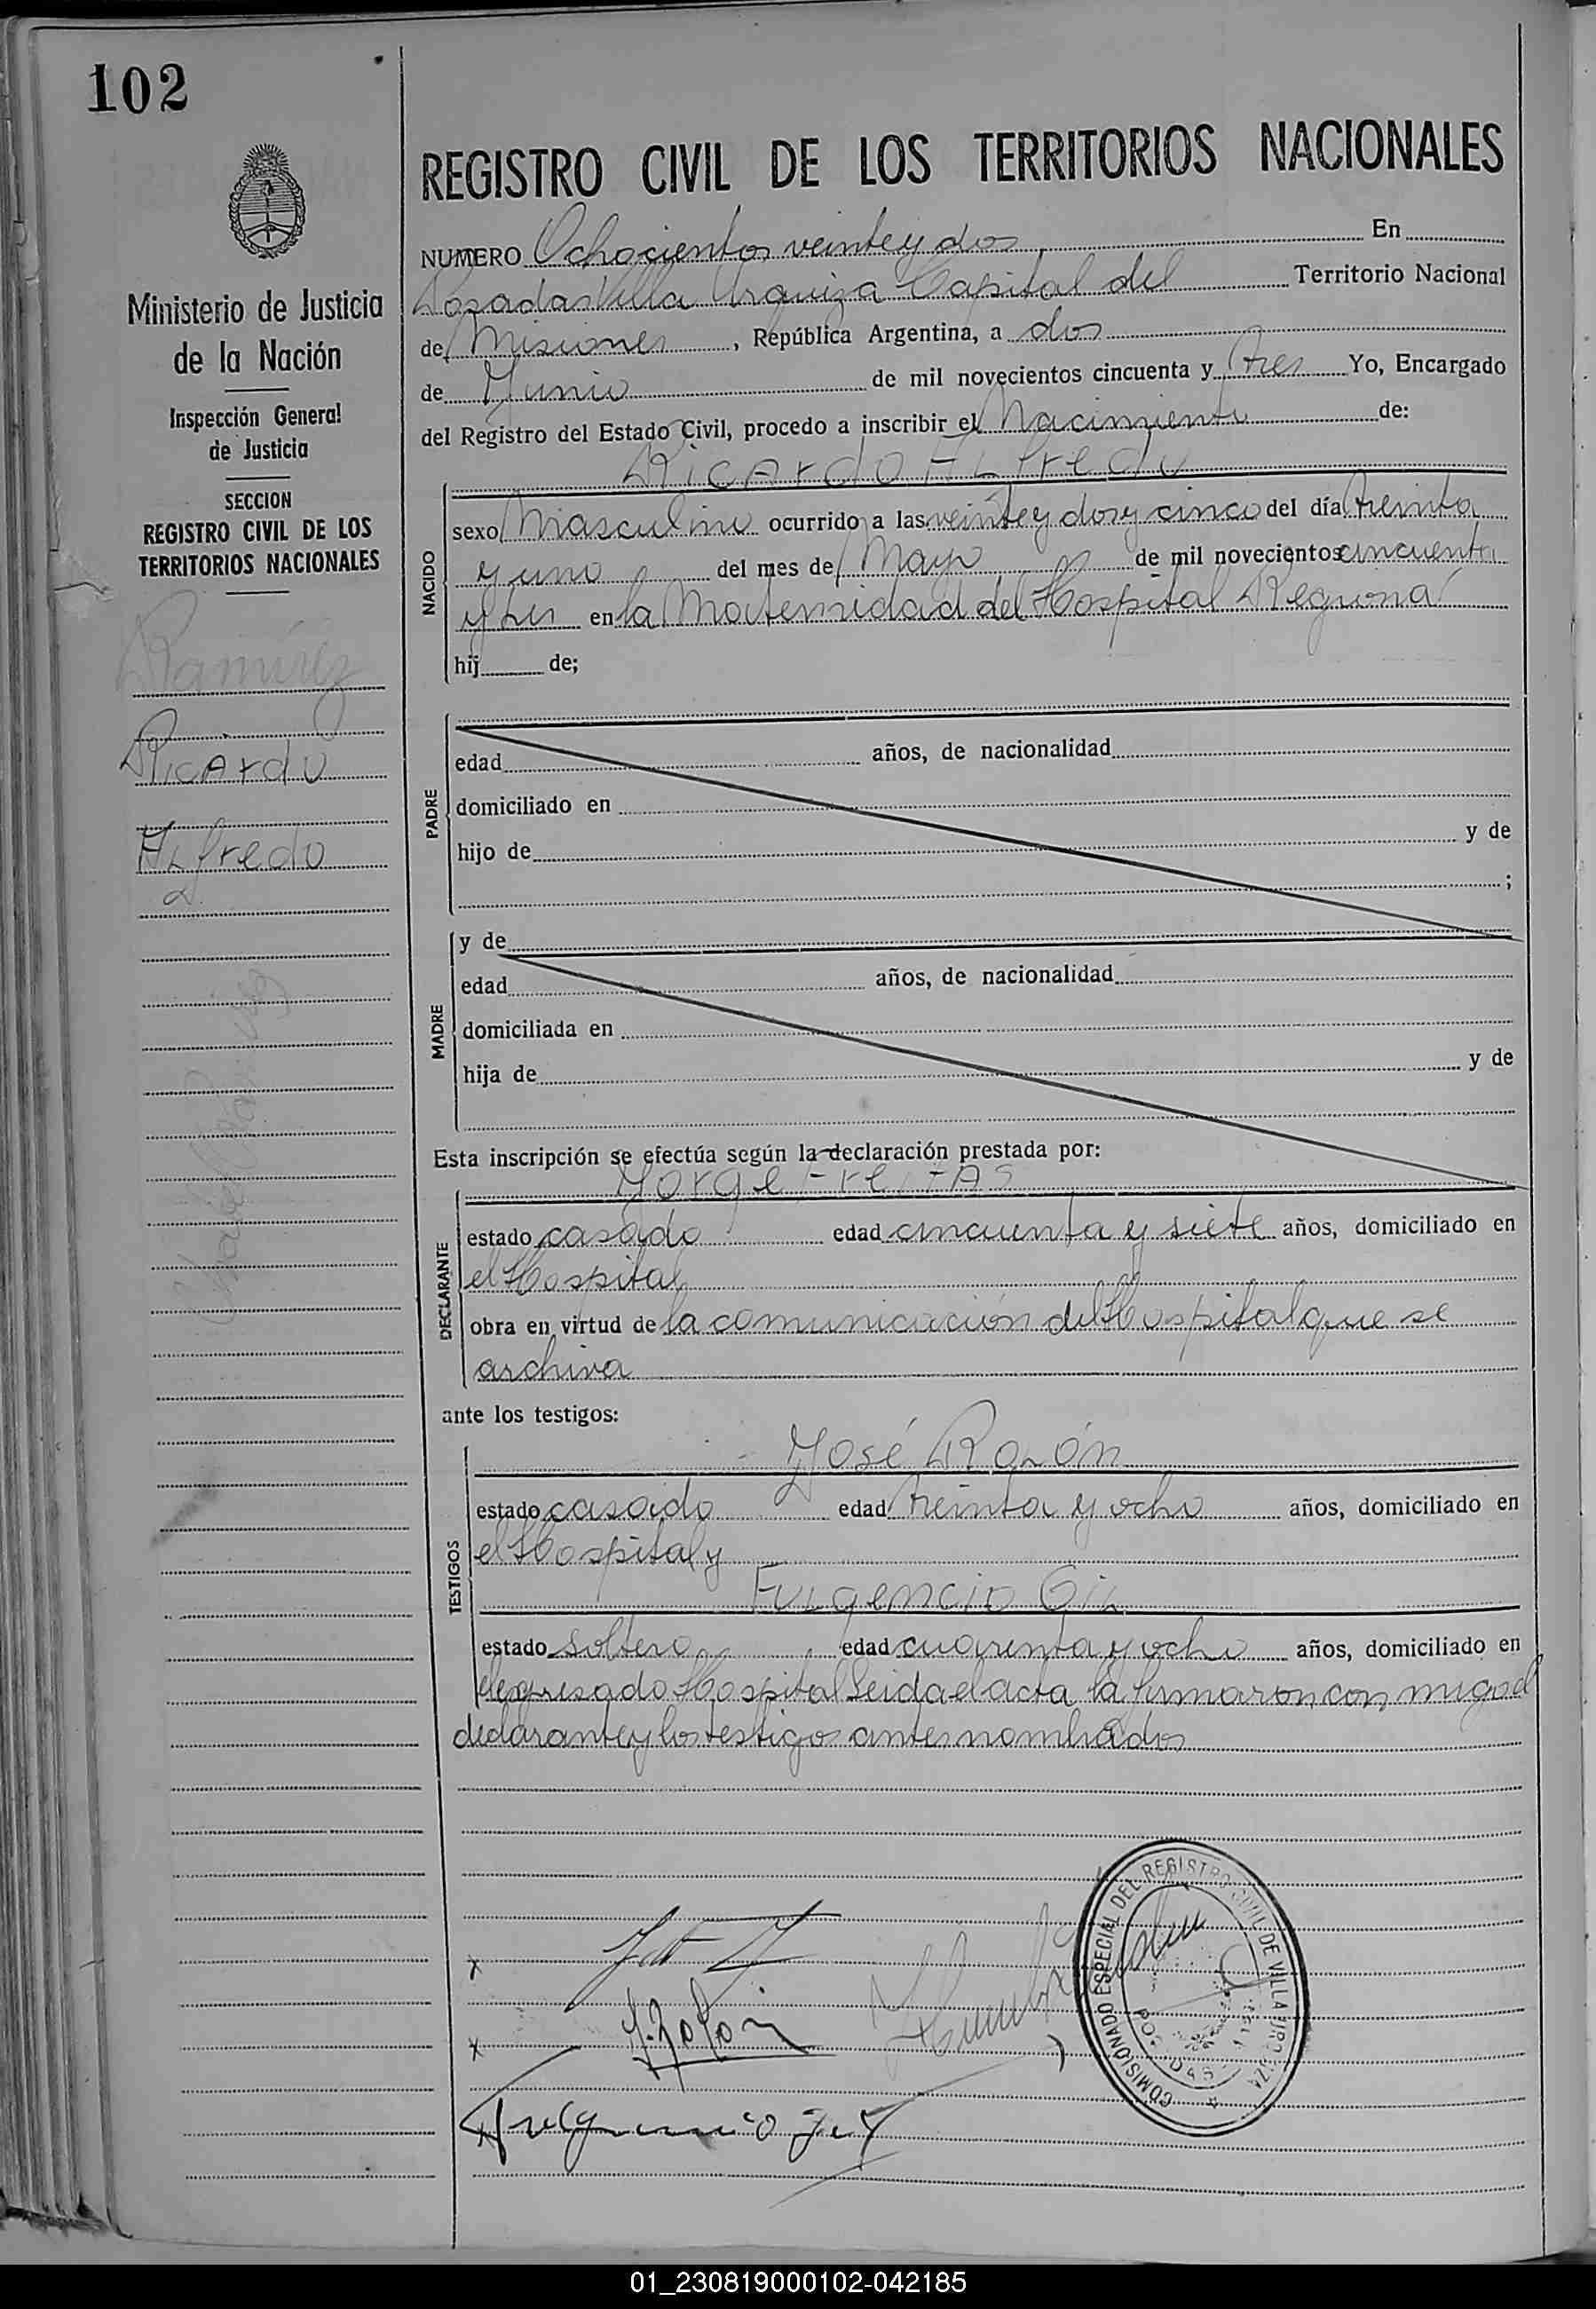 102
REGISTRO CIVIL DE LOS TERRITORIOS NACIONALES
Ministerio de Justicia
de la Nación
Inspección General
de Justicia
SECCION
REGISTRO CIVIL DE LOS
TERRITORIOS NACIONALES
Ramírez
Ricardo
Alfredo
NUMERO Ochocientos veinte y dos En
Posadas Villa Urquiza Capital del Territorio Nacional
de Misiones, República Argentina, a dos
de Junio de mil novecientos cincuenta y tres Yo, Encargado
del Registro del Estado Civil, procedo a inscribir el Nacimiento de:
Ricardo Alfredo
NACIDO
sexo Masculino ocurrido a las veinte y dos y cinco del día treinta
y uno del mes de Mayo de mil novecientos cincuenta
y tres en la Maternidad del Hospital Regional
hij de;
PADRE
edad años, de nacionalidad
domiciliado en
hijo de y de
;
MADRE
y de
edad años, de nacionalidad
domiciliada en
hija de y de
Esta inscripción se efectúa según la declaración prestada por:
Jorge Freitas
DECLARANTE
estado casado edad cincuenta y siete años, domiciliado en
el Hospital
obra en virtud de la comunicación del Hospital que se
archiva
ante los testigos:
José Rolón
TESTIGOS
estado casado edad treinta y ocho años, domiciliado en
el Hospital y
Fulgencio Gil
estado soltero edad cuarenta y ocho años, domiciliado en
el expresado Hospital Leida el acta la firmaron conmigo el
declarante y los testigos antes nombrados
x
x J. Rolón
x Fulgencio Gil
COMISIONADO ESPECIAL DEL REGISTRO CIVIL DE VILLA URQUIZA
POSADAS
01_230819000102-042185